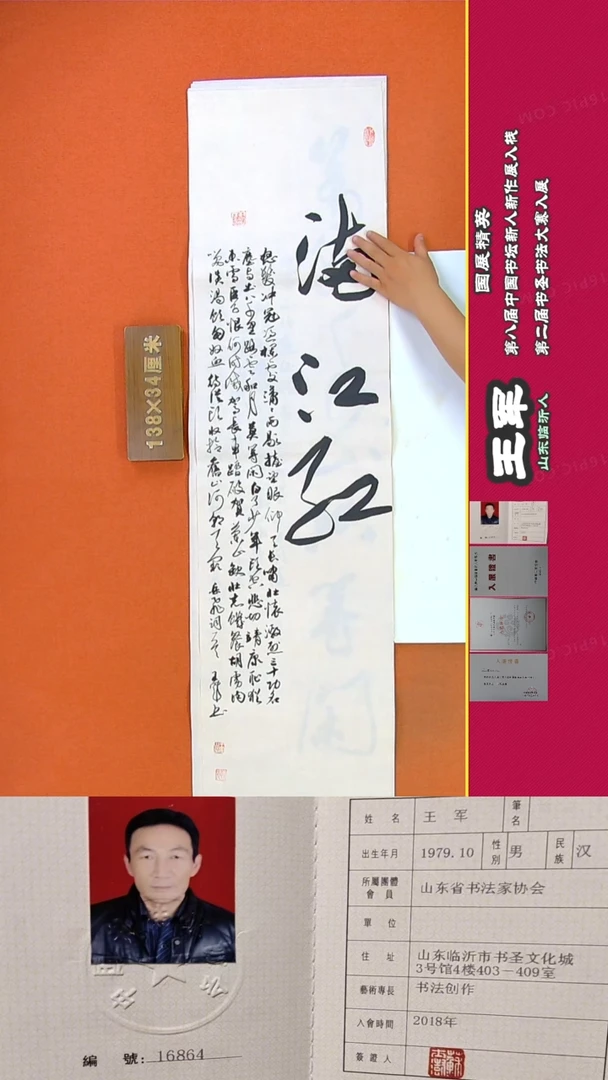 滿江红
怒髮冲冠凭栏处潇潇雨歇抬望眼仰天长啸壮怀激烈三十功名
尘与土八千里路云和月莫等闲白了少年头空悲切靖康耻犹
未雪臣子恨何时灭驾长车踏破贺兰山缺壮志饥餐胡虏肉
笑谈渴饮匈奴血待从头收拾旧山河朝天阙 岳飞词 王军书
138×34厘米
国展精英
第八届中国书坛新人新作展入展
第二届书圣书法大赛入展
王军
山东临沂人
入展证书
編號:16864
姓名 王军 筆名
出生年月 1979.10 性别 男 民族 汉
所屬團體會員 山东省书法家协会
單位
住址 山东临沂市书圣文化城
3号馆4楼403－409室
藝術專長 书法创作
入會時間 2018年
簽證人